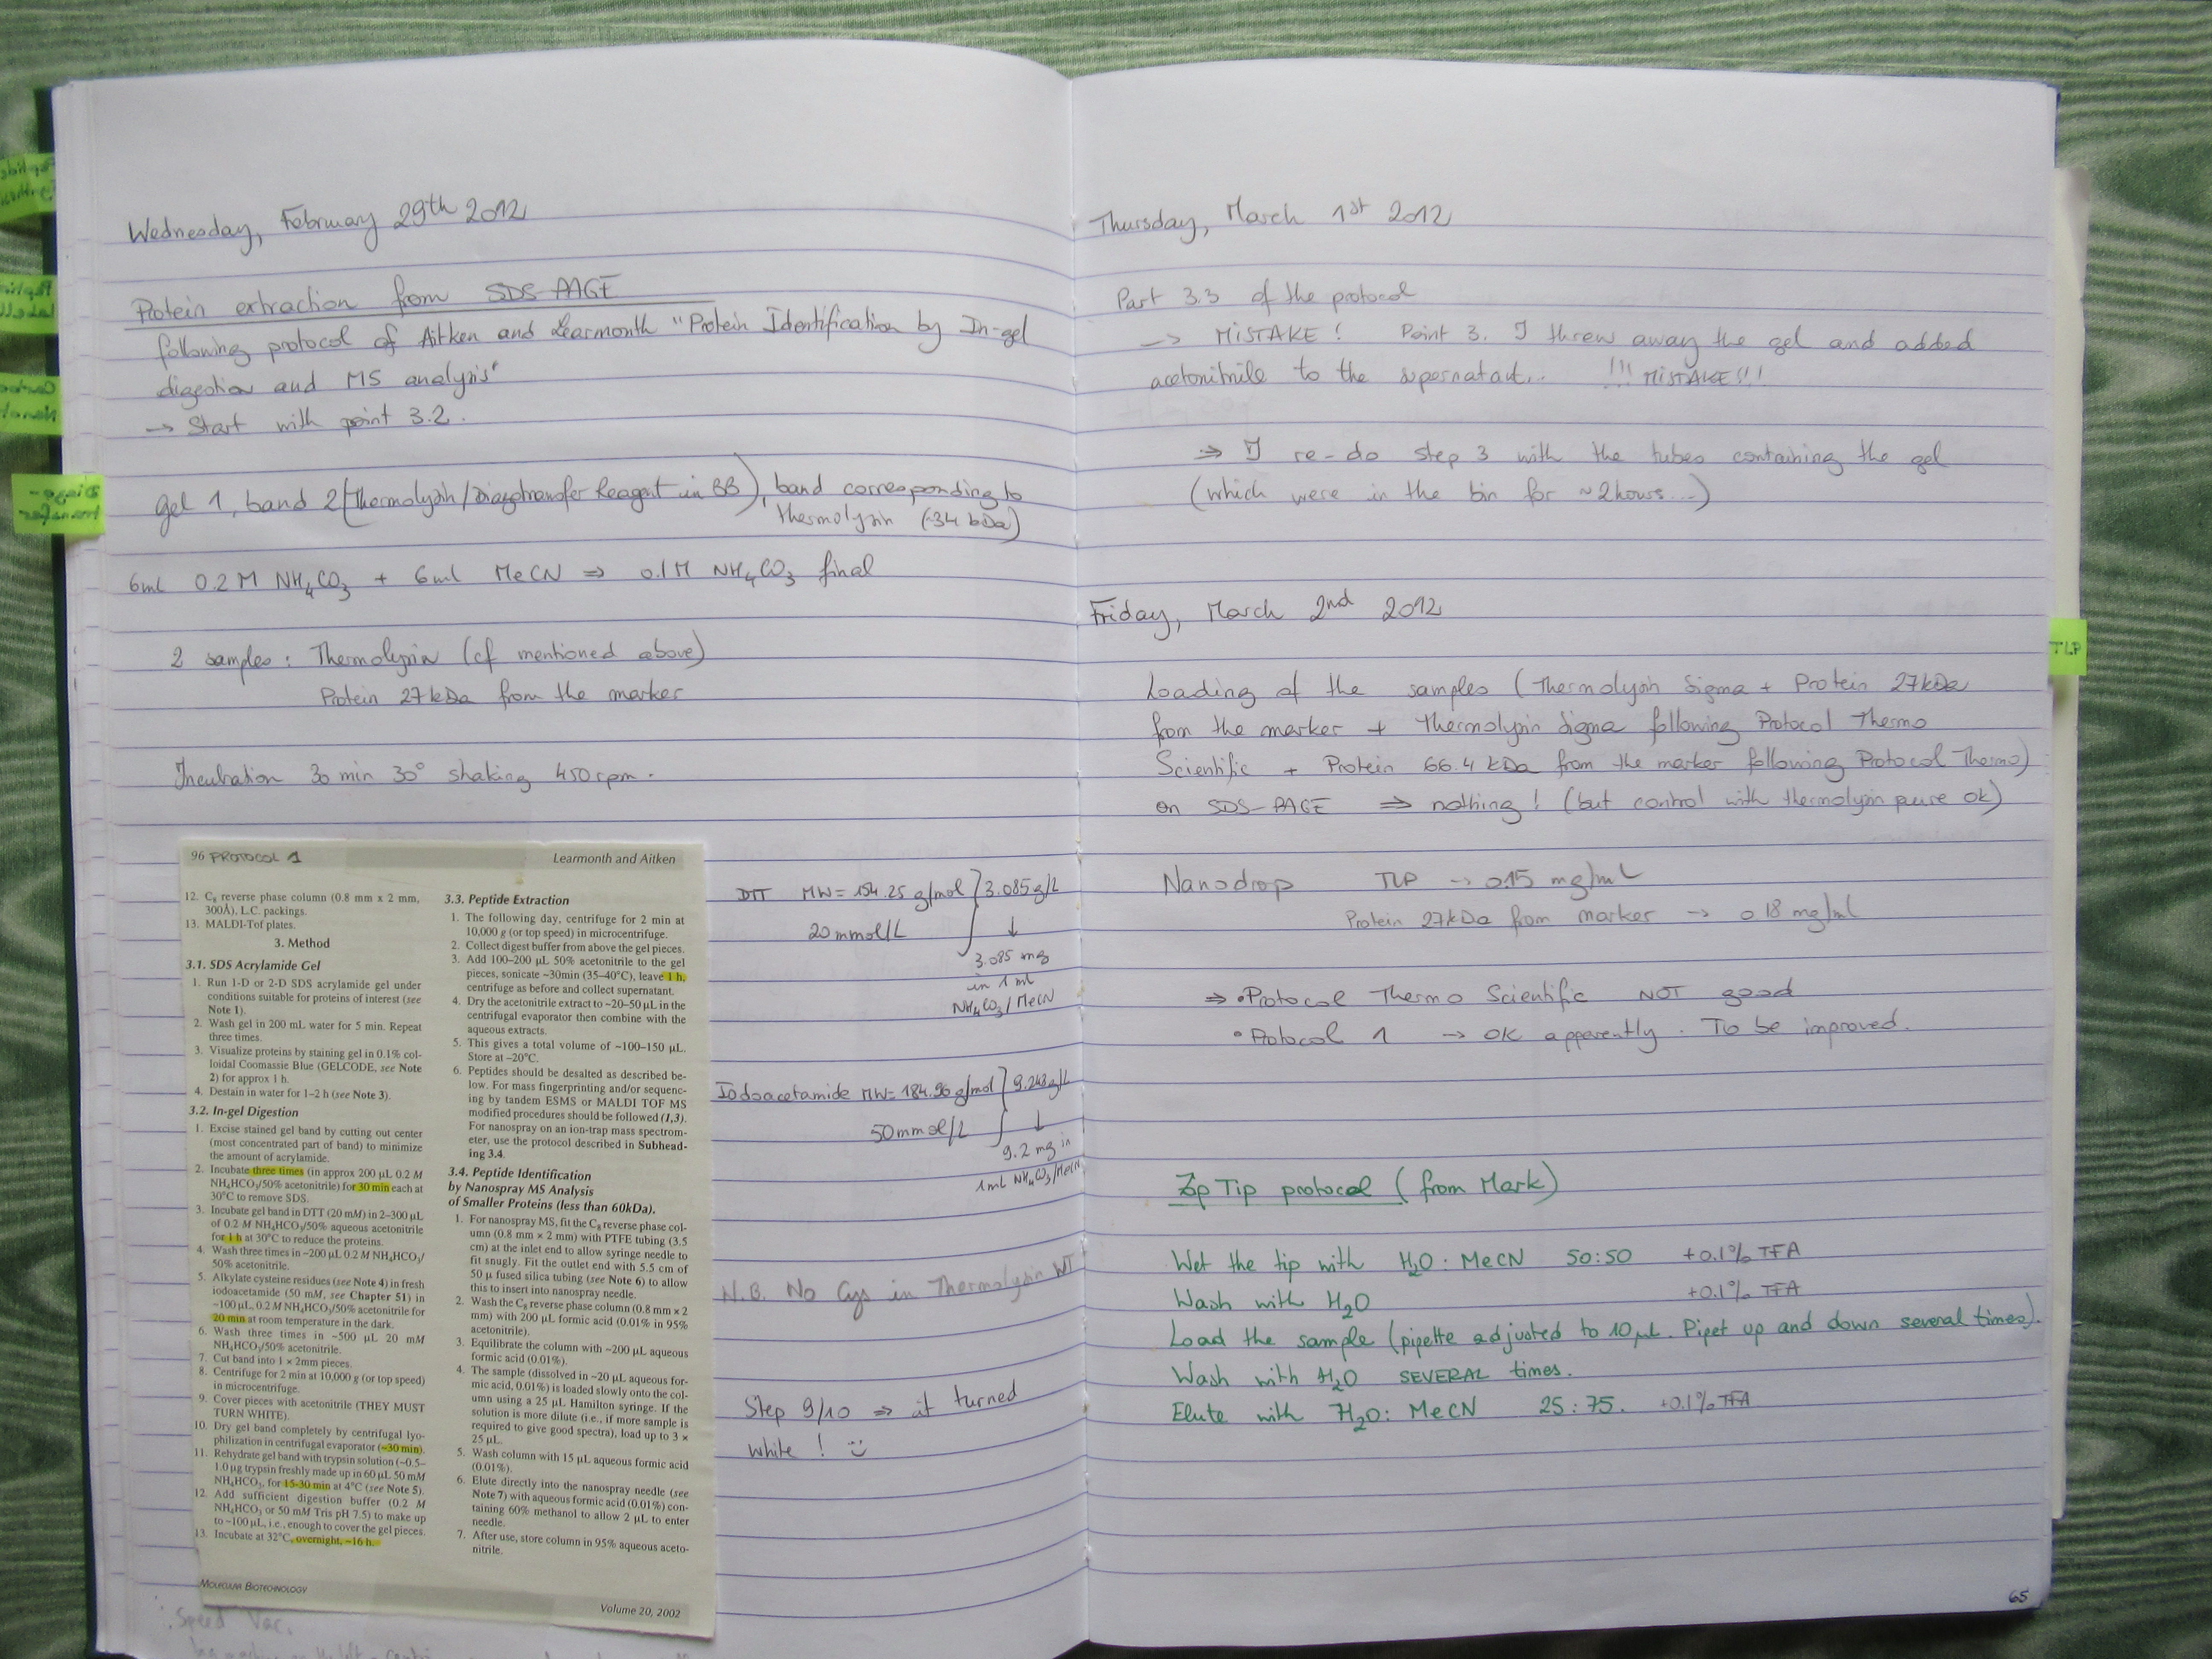 Wednesday, February 29th 2012
Protein extraction from SDS PAGE
following protocol of Aitken and Learmonth "Protein Identification by In-gel
digestion and MS analysis"
→ Start with point 3.2.
Gel 1, band 2 (Thermolysin/Diazotransfer Reagent in BB), band corresponding to
thermolysin (~34 kDa)
6ml 0.2 M NH4CO3 + 6ml MeCN ⇒ 0.1M NH4CO3 final
2 samples : Thermolysin (cf mentioned above)
Protein 27kDa from the marker
Incubation 30 min 30° shaking 450rpm.
96 PROTOCOL 1
Learmonth and Aitken
12. C8 reverse phase column (0.8 mm x 2 mm,
300Å). L.C. packings.
13. MALDI-Tof plates.
3. Method
3.1. SDS Acrylamide Gel
1. Run 1-D or 2-D SDS acrylamide gel under
conditions suitable for proteins of interest (see
Note 1).
2. Wash gel in 200 mL water for 5 min. Repeat
three times.
3. Visualize proteins by staining gel in 0.1% col-
loidal Coomassie Blue (GELCODE, see Note
2) for approx 1 h.
4. Destain in water for 1–2 h (see Note 3).
3.2. In-gel Digestion
1. Excise stained gel band by cutting out center
(most concentrated part of band) to minimize
the amount of acrylamide.
2. Incubate three times (in approx 200 µL 0.2 M
NH4HCO3/50% acetonitrile) for 30 min each at
30°C to remove SDS.
3. Incubate gel band in DTT (20 mM) in 2–300 µL
of 0.2 M NH4HCO3/50% aqueous acetonitrile
for 1 h at 30°C to reduce the proteins.
4. Wash three times in ~200 µL 0.2 M NH4HCO3/
50% acetonitrile.
5. Alkylate cysteine residues (see Note 4) in fresh
iodoacetamide (50 mM, see Chapter 51) in
~100 µL, 0.2 M NH4HCO3/50% acetonitrile for
20 min at room temperature in the dark.
6. Wash three times in ~500 µL 20 mM
NH4HCO3/50% acetonitrile.
7. Cut band into 1 × 2mm pieces.
8. Centrifuge for 2 min at 10,000 g (or top speed)
in microcentrifuge.
9. Cover pieces with acetonitrile (THEY MUST
TURN WHITE).
10. Dry gel band completely by centrifugal lyo-
philization in centrifugal evaporator (~30 min).
11. Rehydrate gel band with trypsin solution (~0.5–
1.0 µg trypsin freshly made up in 60 µL 50 mM
NH4HCO3, for 15-30 min at 4°C (see Note 5).
12. Add sufficient digestion buffer (0.2 M
NH4HCO3 or 50 mM Tris pH 7.5) to make up
to ~100 µL, i.e., enough to cover the gel pieces.
13. Incubate at 32°C, overnight, ~16 h.
3.3. Peptide Extraction
1. The following day, centrifuge for 2 min at
10,000 g (or top speed) in microcentrifuge.
2. Collect digest buffer from above the gel pieces.
3. Add 100–200 µL 50% acetonitrile to the gel
pieces, sonicate ~30min (35–40°C), leave 1 h,
centrifuge as before and collect supernatant.
4. Dry the acetonitrile extract to ~20–50 µL in the
centrifugal evaporator then combine with the
aqueous extracts.
5. This gives a total volume of ~100–150 µL.
Store at –20°C.
6. Peptides should be desalted as described be-
low. For mass fingerprinting and/or sequenc-
ing by tandem ESMS or MALDI TOF MS
modified procedures should be followed (1,3).
For nanospray on an ion-trap mass spectrom-
eter, use the protocol described in Subhead-
ing 3.4.
3.4. Peptide Identification
by Nanospray MS Analysis
of Smaller Proteins (less than 60kDa).
1. For nanospray MS, fit the C8 reverse phase col-
umn (0.8 mm × 2 mm) with PTFE tubing (3.5
cm) at the inlet end to allow syringe needle to
fit snugly. Fit the outlet end with 5.5 cm of
50 µ fused silica tubing (see Note 6) to allow
this to insert into nanospray needle.
2. Wash the C8 reverse phase column (0.8 mm × 2
mm) with 200 µL formic acid (0.01% in 95%
acetonitrile).
3. Equilibrate the column with ~200 µL aqueous
formic acid (0.01%).
4. The sample (dissolved in ~20 µL aqueous for-
mic acid, 0.01%) is loaded slowly onto the col-
umn using a 25 µL Hamilton syringe. If the
solution is more dilute (i.e., if more sample is
required to give good spectra), load up to 3 ×
25 µL.
5. Wash column with 15 µL aqueous formic acid
(0.01%).
6. Elute directly into the nanospray needle (see
Note 7) with aqueous formic acid (0.01%) con-
taining 60% methanol to allow 2 µL to enter
needle.
7. After use, store column in 95% aqueous aceto-
nitrile.
MOLECULAR BIOTECHNOLOGY
Volume 20, 2002
DTT MW= 154.25 g/mol 3.085g/L
20mmol/L ↓
3.085 mg
in 1 ml
NH4CO3/MeCN
Iodoacetamide MW= 184.96 g/mol 9.248g/L
50mmol/L ↓
9.2 mg in
1ml NH4CO3/MeCN
N.B. No Cys in Thermolysin WT
Step 9/10 ⇒ it turned
white !
Speed Vac.
Thursday, March 1st 2012
Part 3.3 of the protocol
→ MISTAKE! Point 3. I threw away the gel and added
acetonitrile to the supernatant... !!! MISTAKE!!!
⇒ I re-do step 3 with the tubes containing the gel
(which were in the bin for ~2hours...)
Friday, March 2nd 2012
Loading of the samples (Thermolysin Sigma + Protein 27kDa
from the marker + Thermolysin Sigma following Protocol Thermo
Scientific + Protein 66.4 kDa from the marker following Protocol Thermo)
on SDS-PAGE ⇒ nothing! (but control with thermolysin pure ok)
Nanodrop TLP → 0.15 mg/mL
Protein 27kDa from marker → 0.18 mg/ml
⇒ • Protocol Thermo Scientific NOT good
• Protocol 1 → OK apparently. To be improved.
Zip Tip protocol (from Mark)
Wet the tip with H2O : MeCN 50:50 +0.1% TFA
Wash with H2O +0.1% TFA
Load the sample (pipette adjusted to 10µL. Pipet up and down several times).
Wash with H2O SEVERAL times.
Elute with H2O: MeCN 25:75. +0.1% TFA
65
TLP
Diazo-
transfer